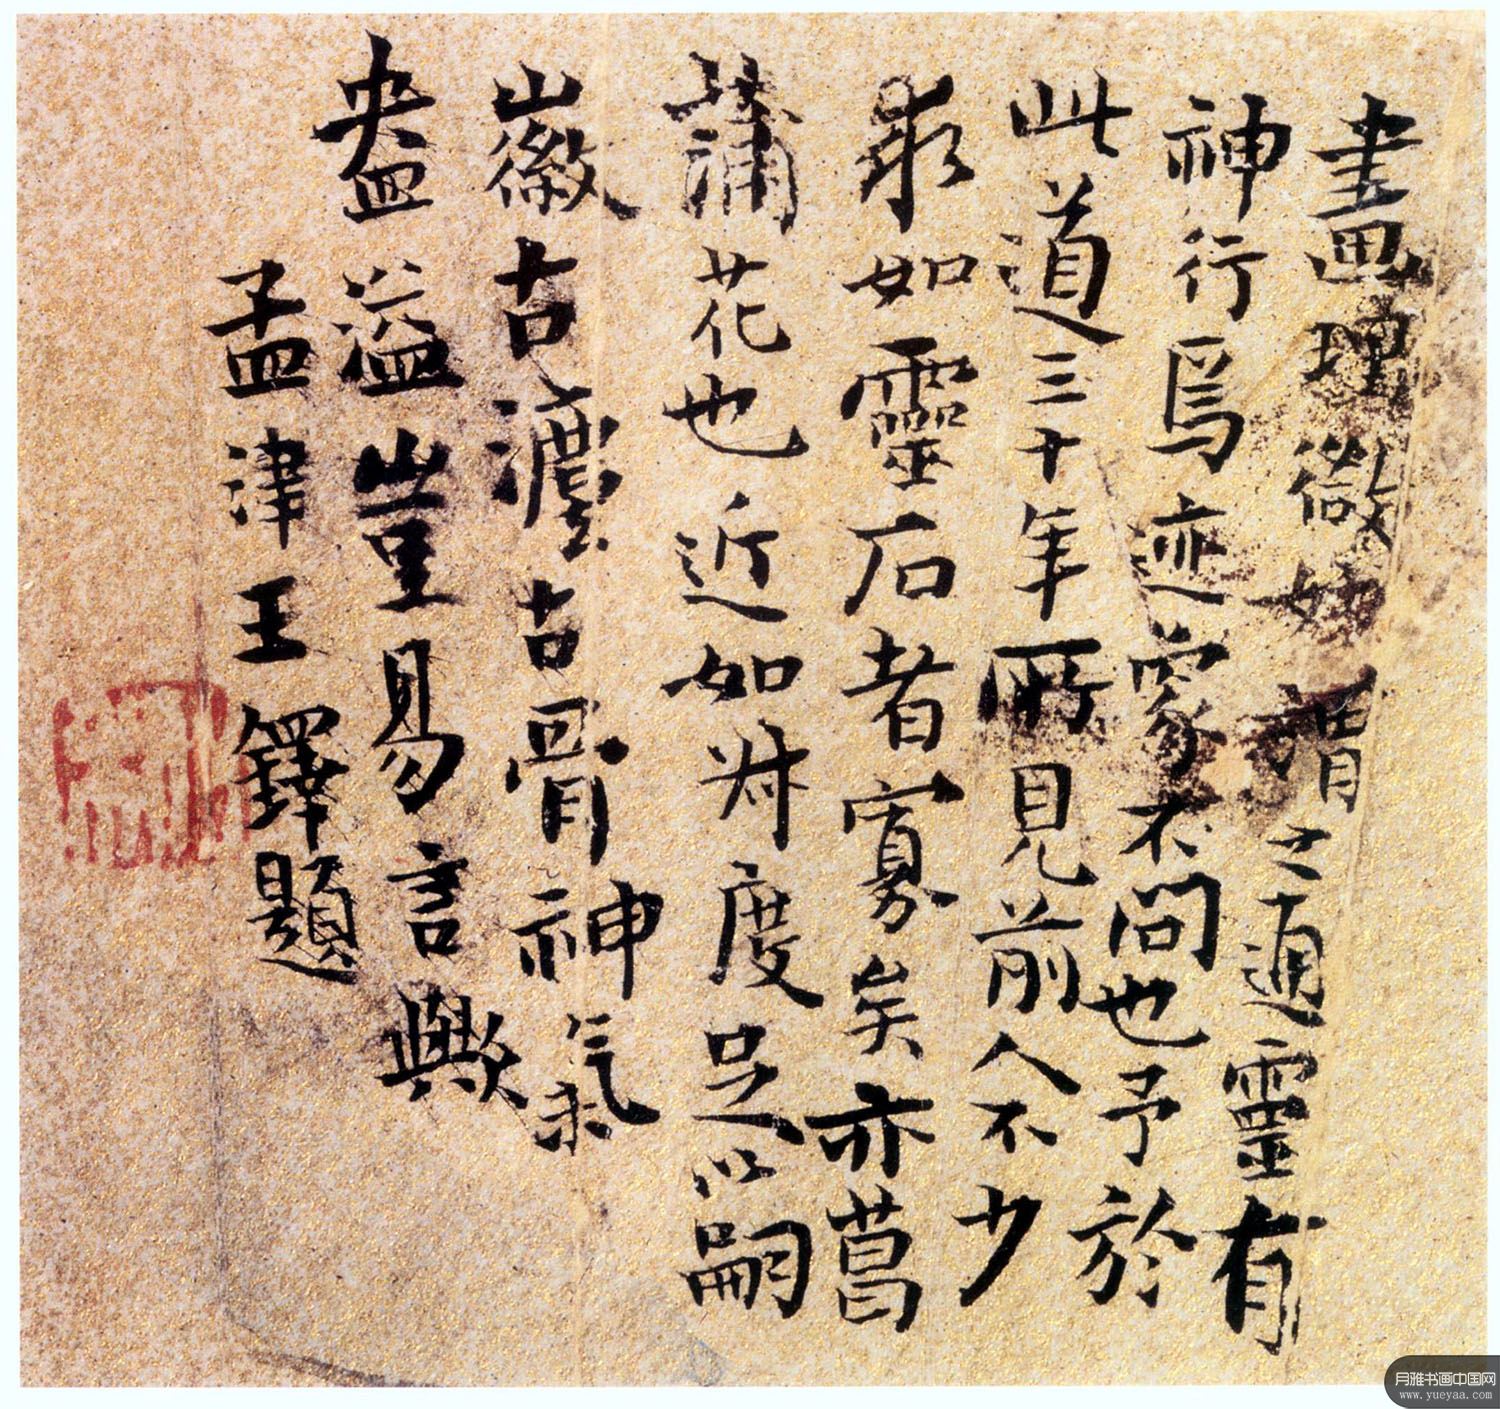 畫理微妙謂之通靈有
神行焉迹象不問也予於
此道三十年所見前人不少
求如靈石者寡矣亦菖
蒲花也近如叔度足以嗣
徽古澹古骨神氣未
央盎溢豈易言歟
孟津王鐸題
月雅书画中国网
www.yueyaa.com